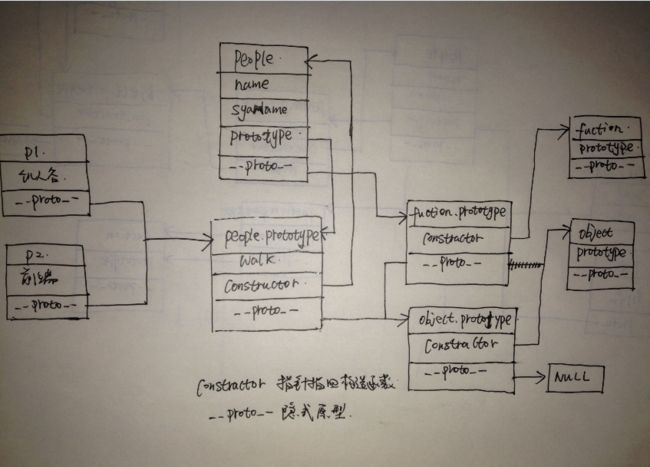 people.
name
syaname
prototype
--proto--
p1.
--proto--
p2.
前端
--proto--
people.prototype
walk
Constructor
--proto--
fuction.prototype
Constractor
--proto--
fuction.
prototype
--proto--
object
prototype
--proto--
object.prototype
Constractor
--proto--
NULL
Constractor 指针指回构造函数.
--proto-- 隐式原型.